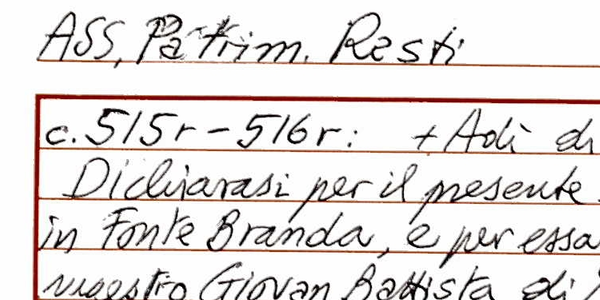 ASS, Patrim. Resti
c. 515r - 516r: + Adì di
Dichiarasi per il presente
in Fonte Branda, e per essa
maestro Giovan Battista di